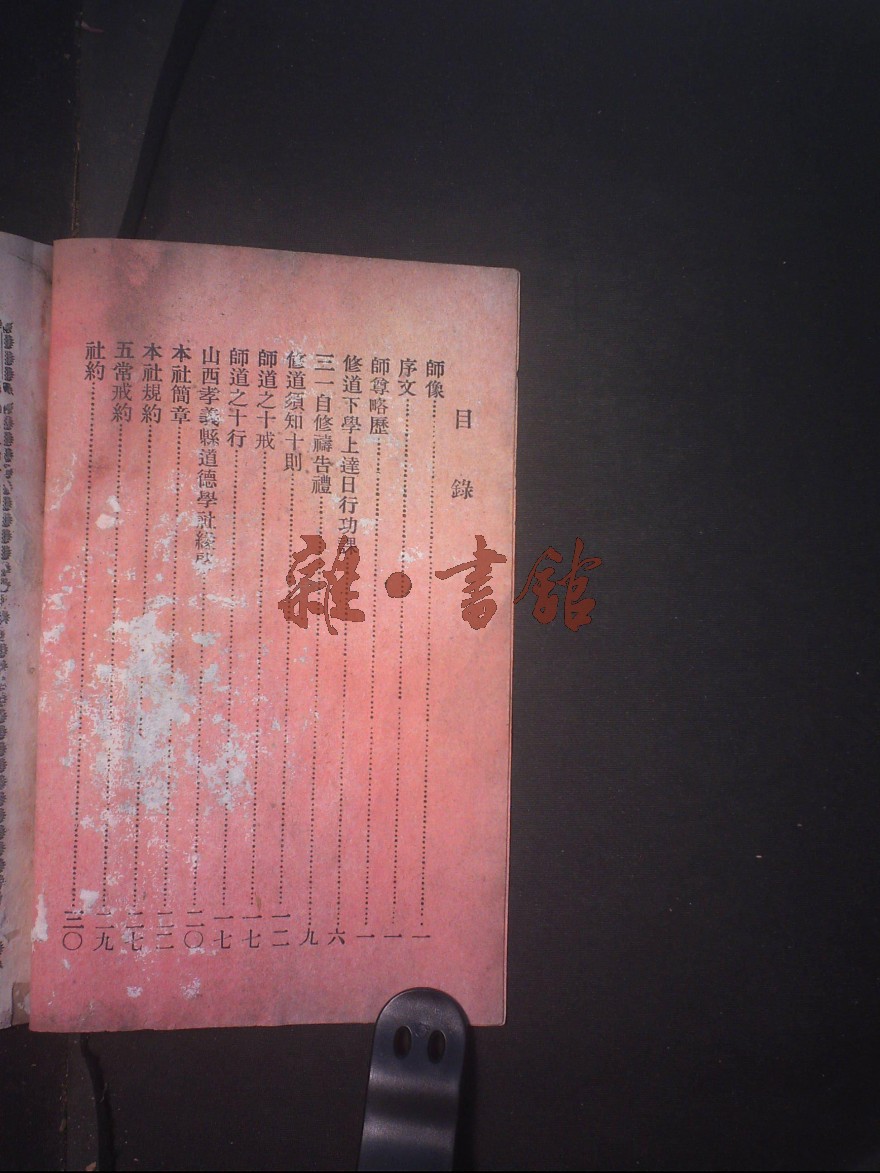 目錄
師像……一
序文……一
師尊略歷……一
修道下學上達日行功課……六
三一自修禱告禮……九
修道須知十則……一二
師道之十戒……一七
師道之十行……一七
山西孝義縣道德學社緣……二〇
本社簡章……二二
本社規約……二七
五常戒約……二九
社約……三〇
雜·書館